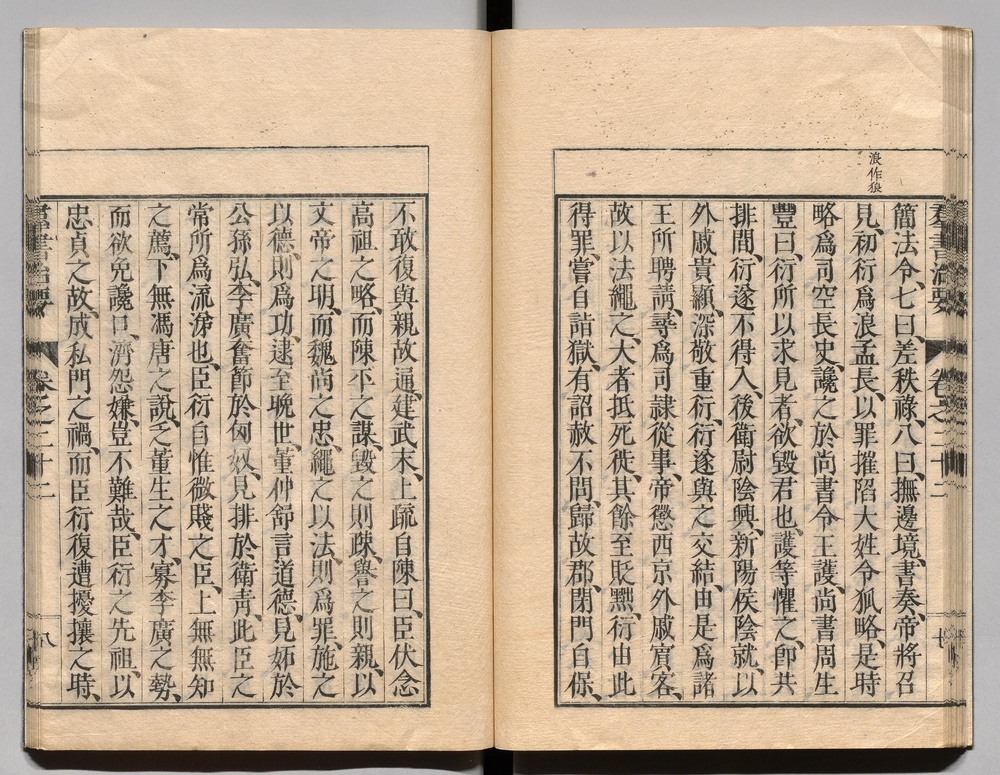 群書治要 卷之二十二 七
浪作狼
簡法令、七曰、差秩祿、八曰、撫邊境、書奏、帝將召
見、初衍爲浪孟長、以罪摧陷大姓令狐略、是時
略爲司空長史、讒之於尚書令王護、尚書周生
豐曰、衍所以求見者、欲毀君也、護等懼之、卽共
排間、衍遂不得入、後衛尉陰興、新陽侯陰就、以
外戚貴顯、深敬重衍、衍遂與之交結、由是爲諸
王所聘請、尋爲司隷從事、帝懲西京外戚賓客、
故以法繩之、大者抵死徙、其餘至貶黜、衍由此
得罪、嘗自詣獄、有詔赦不問、歸故郡、閉門自保、
不敢復與親故通、建武末、上疏自陳曰、臣伏念
高祖之略、而陳平之謀、毀之則疎、譽之則親、以
文帝之明、而魏尚之忠、繩之以法、則爲罪、施之
以德、則爲功、逮至晩世、董仲舒言道德、見妬於
公孫弘、李廣奮節於匈奴、見排於衛青、此臣之
常所爲流涕也、臣衍自惟微賤之臣、上無無知
之薦、下無馮唐之說、乏董生之才、寡李廣之勢、
而欲免讒口、濟怨嫌、豈不難哉、臣衍之先祖、以
忠貞之故、成私門之禍、而臣衍復遭擾攘之時、
群書治要 卷之二十二 八